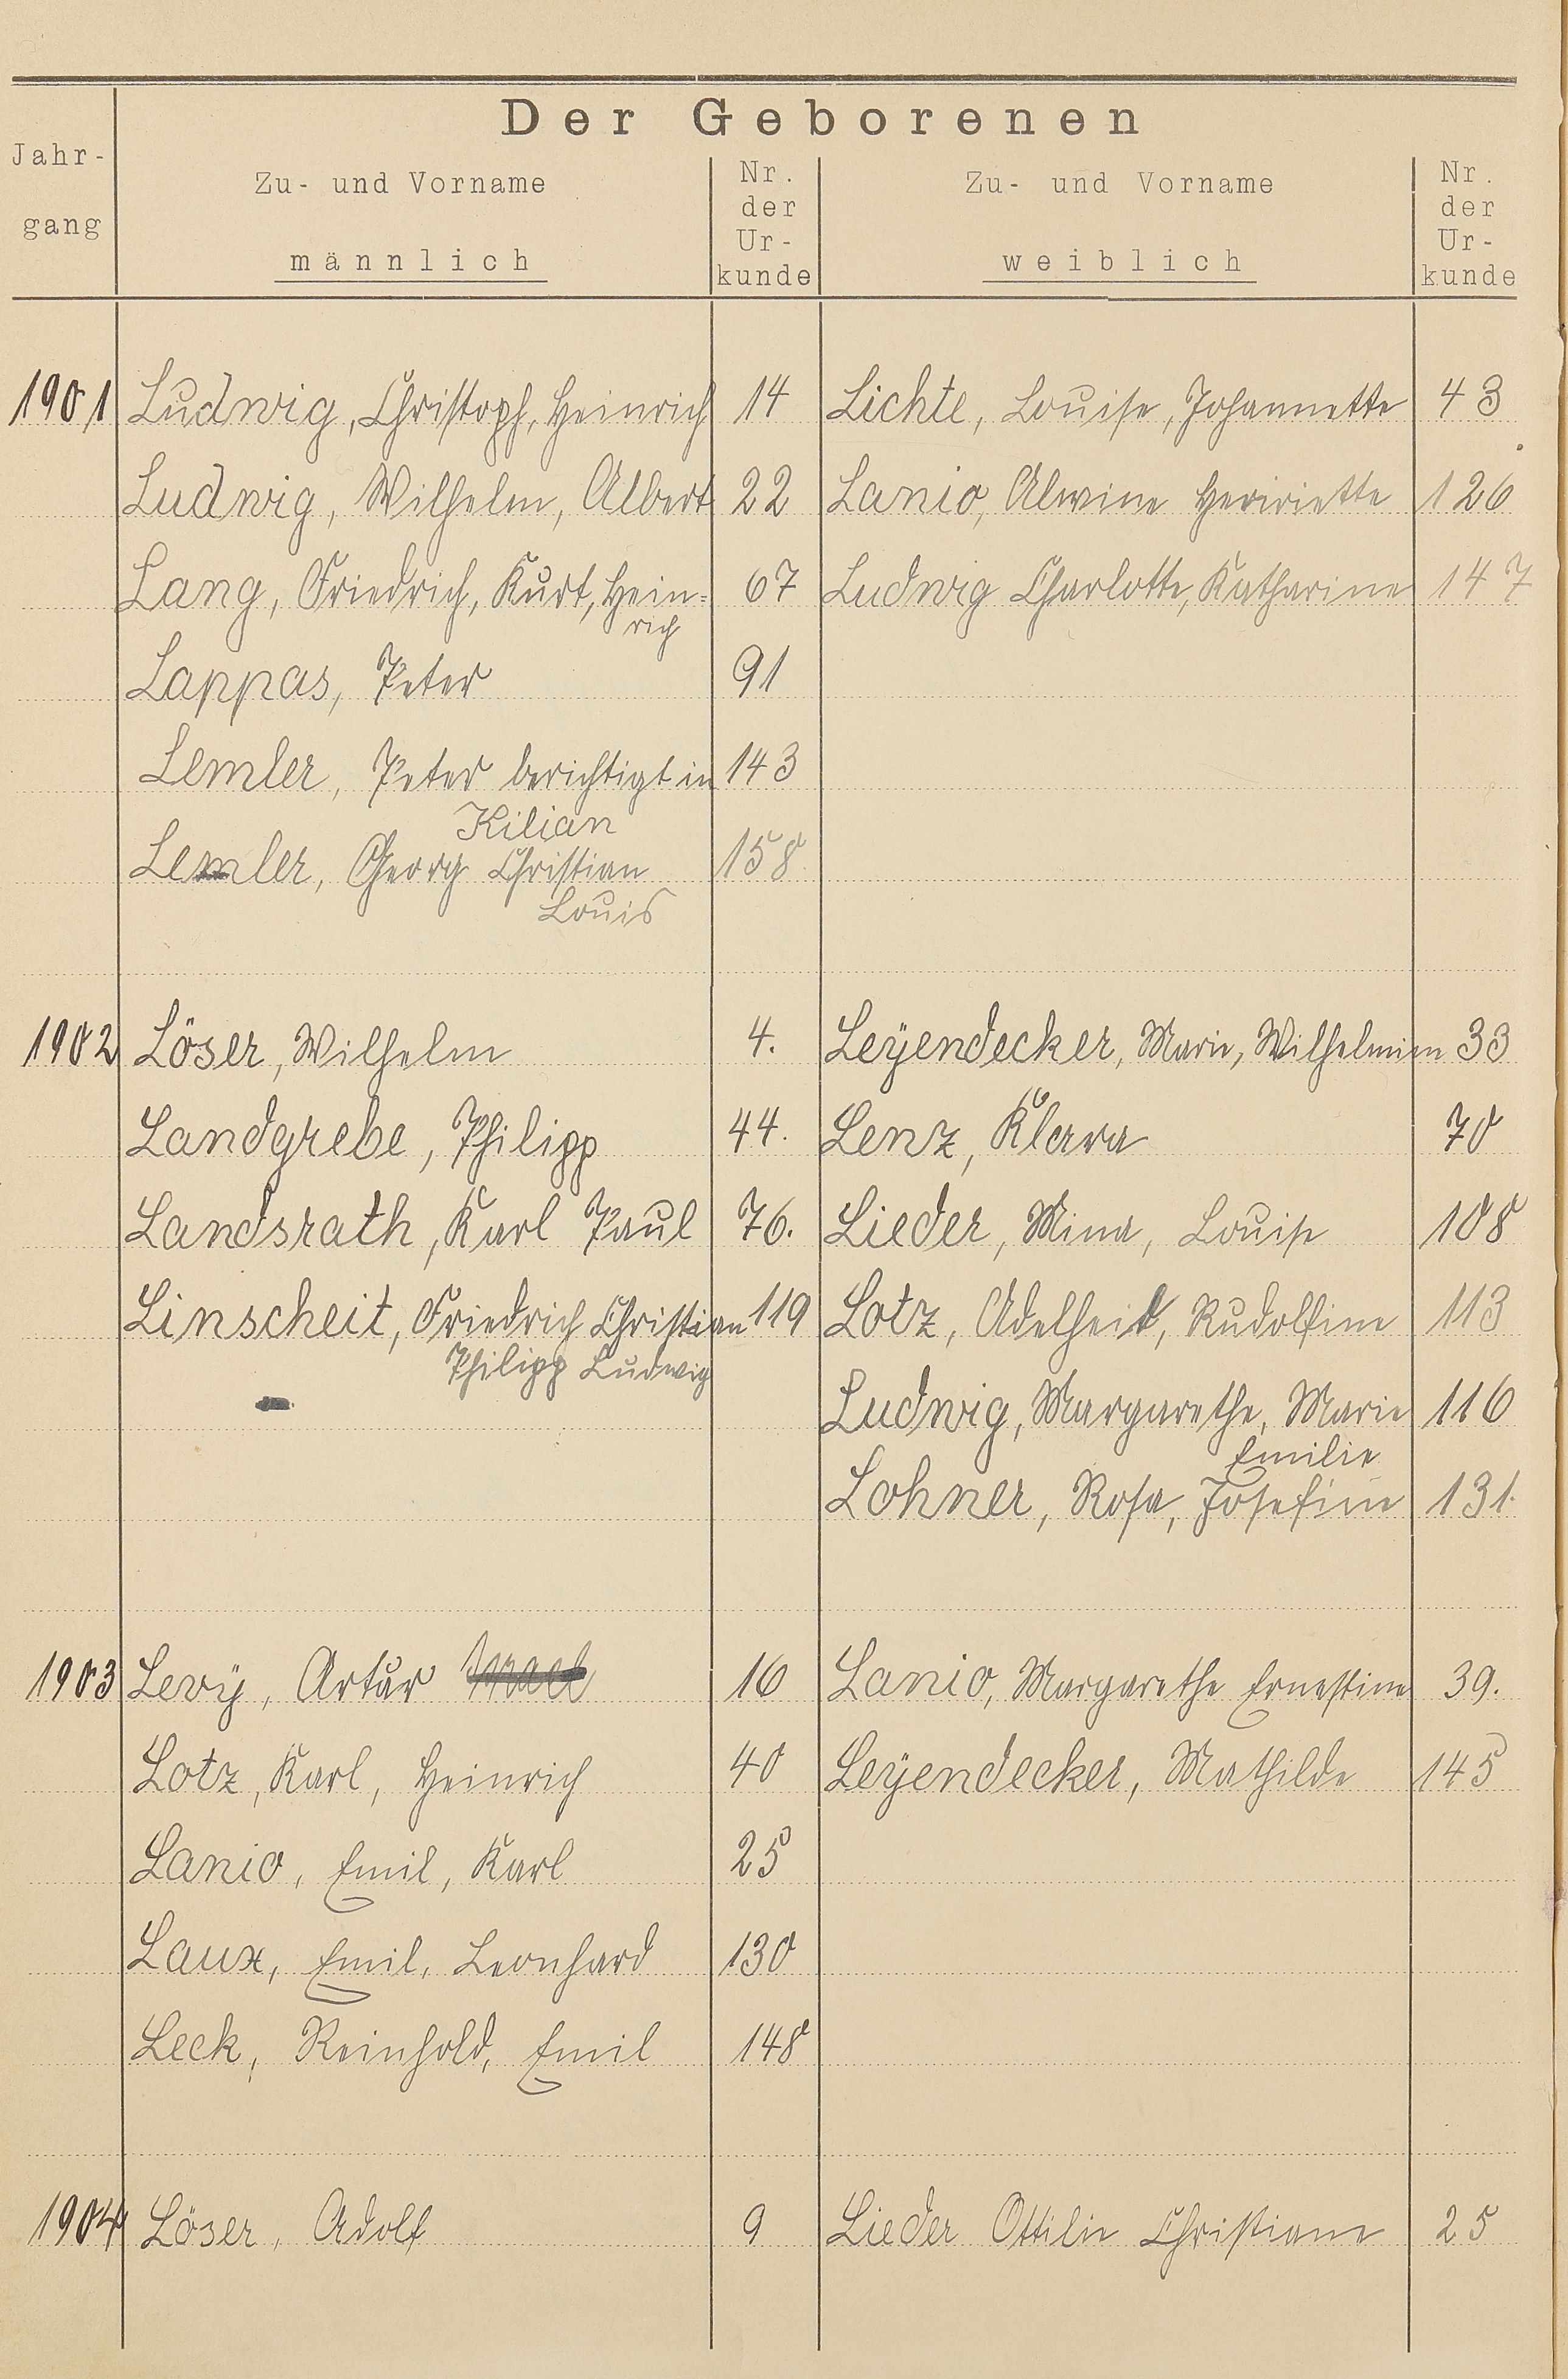 Der Geborenen
Jahr-
gang
Zu- und Vorname
männlich
Nr.
der
Ur-
kunde
Zu- und Vorname
weiblich
Nr.
der
Ur-
kunde
1901 Ludwig, Christoph, Heinrich 14 Lichte, Louise, Johannette 43
Ludwig, Wilhelm, Albert 22 Lanio, Alwine Henriette 126
Lang, Friedrich, Kurt, Hein= 67 Ludwig Charlotte, Katharine 147
rich
Lappas, Peter 91
Lemler, Peter berichtigt in 143
Kilian
Lemler, Georg Christian 158
Louis
1902 Löser, Wilhelm 4. Leÿendecker, Marie, Wilhelmien 33
Landgrebe, Philipp 44. Lenz, Klara 70
Landsrath, Karl Paul 76. Lieder, Mina, Louise 108
Linscheit, Friedrich Christian 119 Lotz, Adelheid, Rudolfine 113
Philipp Ludwig
Ludwig, Margarethe, Marie 116
Emilie
Lohner, Rosa, Josefine 131.
1903 Levÿ, Artur Israel 16 Lanio, Margarethe Ernestine 39.
Lotz, Karl, Heinrich 40 Leÿendecker, Mathilde 145
Lanio, Emil, Karl 25
Laux, Emil, Leonhard 130
Leck, Reinhold, Emil 148
1904 Löser, Adolf 9 Lieder Ottilie Christiane 25